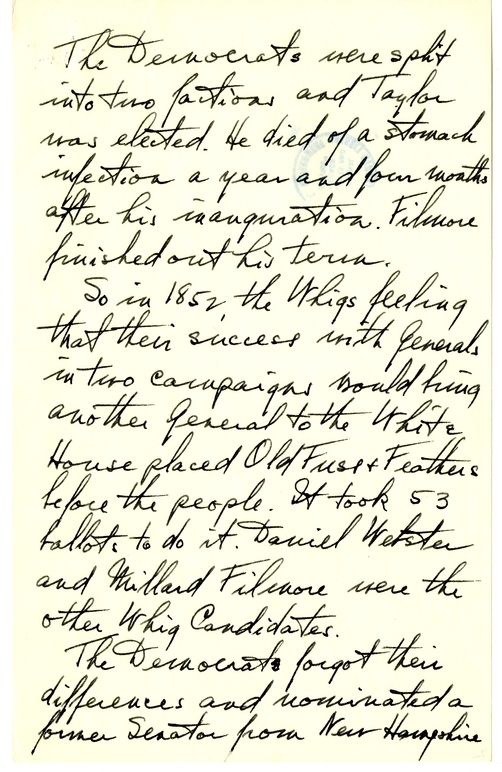 The Democrats were split
into two factions and Taylor
was elected. He died of a stomach
infection a year and four months
after his inauguration. Filmore
finished out his term.
So in 1852, the Whigs feeling
that their success with Generals
in two campaigns would bring
another General to the White
House placed Old Fuss & Feathers
before the people. It took 53
ballots to do it. Daniel Webster
and Millard Filmore were the
other Whig Candidates.
The Democrats forgot their
differences and nominated a
former Senator from New Hampshire